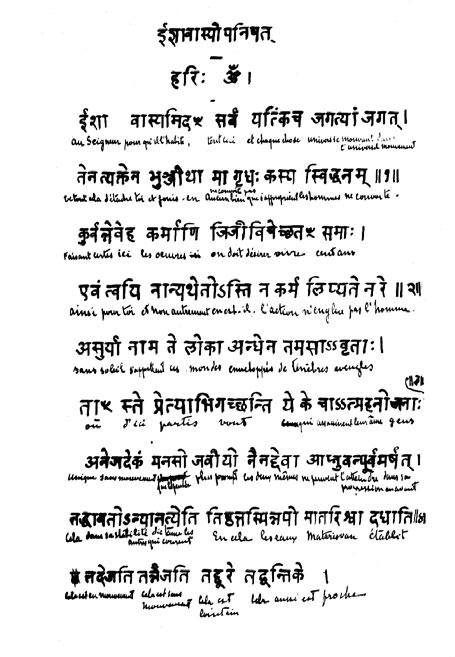 ईशावास्योपनिषत्
हरिः ॐ ।
ईशा वास्यमिद ꣳ सर्वं यत्किंच जगत्यां जगत् ।
au Seigneur pour qu'il l'habite, tout ceci et chaque chose univers se mouvant dans
l'universel mouvement
तेन त्यक्तेन भुञ्जीथा मा गृधः कस्य स्विद्धनम् ॥१॥
de tout cela détendre toi et jouis-en Aucun bien que s'approprient les hommes ne convoite.
कुर्वन्नेवेह कर्माणि जिजीविषेच्छत ꣳ समाः ।
Faisant certes ici les oeuvres ici on doit désirer vivre cent ans
एवं त्वयि नान्यथेतोऽस्ति न कर्म लिप्यते नरे ॥२॥
ainsi pour toi et non autrement en est-il. l'action n'englue pas l'homme.
असुर्या नाम ते लोका अन्धेन तमसाऽऽवृताः ।
sans soleil s'appellent ces mondes enveloppés de ténèbres aveugles
॥३॥
ता ꣳ स्ते प्रेत्याभिगच्छन्ति ये के चाऽऽत्महनो जनाः
où d'ici partis vont ceux qui assassinent leur âme gens
अनेजदेकं मनसो जवीयो नैनद्देवा आप्नुवन्पूर्वमर्षत् ।
unique sans mouvement plus prompt les dieux mêmes ne peuvent l'atteindre dans sa
progression en avant
तद्धावतोऽन्यानत्येति तिष्ठत्तस्मिन्नपो मातरिश्वा दधाति ॥४॥
Cela dans sa stabilité distance les
autres qui courent En cela les eaux Matariswan établit
तदेजति तन्नैजति तद्दूरे तद्वन्तिके ।
Cela est en mouvement cela est sans
mouvement cela est
lointain cela aussi est proche